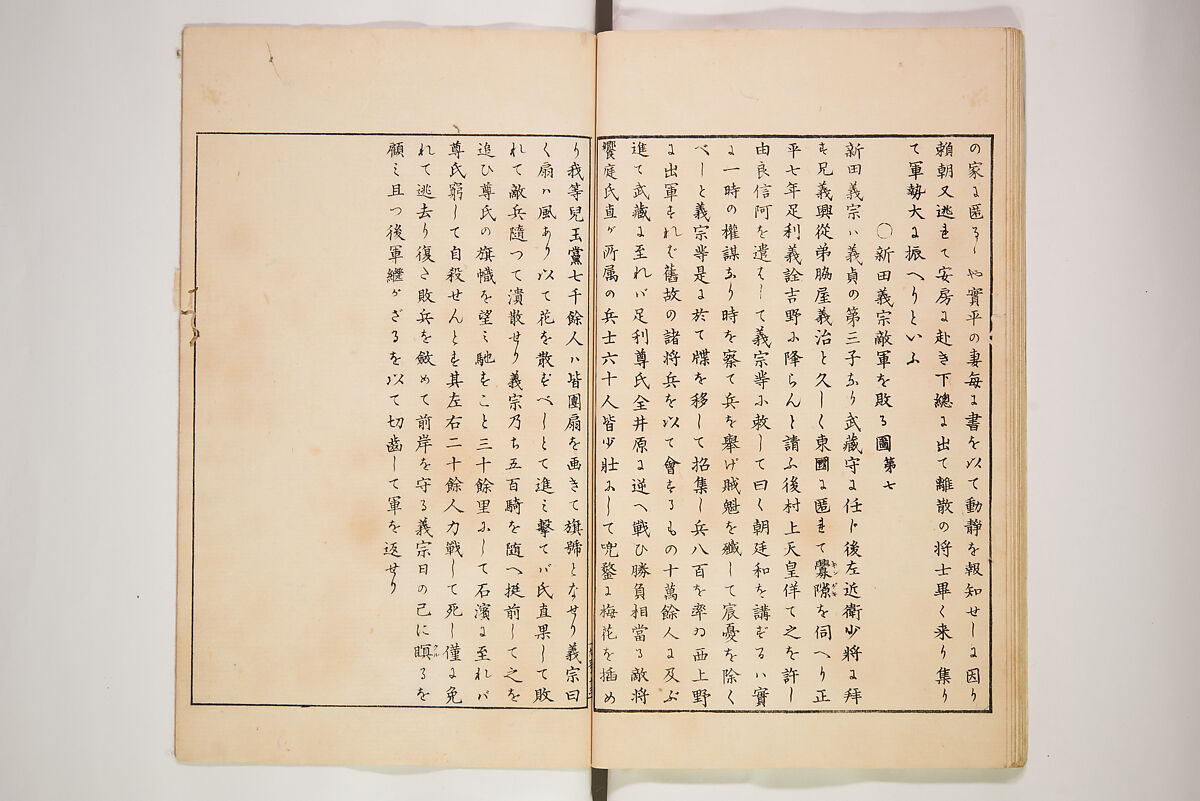 の家に匿るゝや實平の妻毎に書を以て動靜を報知せしに因り
頼朝又逃れて安房に赴き下總に出て離散の将士畢く来り集り
て軍勢大に振へりといふ
〇新田義宗敵軍を敗る圖第七
新田義宗ハ義貞の第三子なり武藏守に任じ後左近衛少將に拜
す兄義興從弟脇屋義治と久しく東國に匿れて釁隙を伺へり正
平七年足利義詮吉野に降らんと請ふ後村上天皇佯て之を許し
由良信阿を遣はして義宗等に敕して曰く朝廷和を講ずるハ實
に一時の權謀なり時を察て兵を舉げ賊魁を殲して宸憂を除く
べしと義宗等是に於て牒を移して招集し兵八百を率ゐ西上野
に出軍すれば舊故の諸将兵を以て會するもの十萬餘人に及ぶ
進て武藏に至れバ足利尊氏全井原に逆へ戦ひ勝負相當る敵将
饗庭氏直が所属の兵士六十人皆少壮にして兜鍪に梅花を插め
り我等兒玉黨七千餘人ハ皆團扇を画きて旗號となせり義宗曰
く扇ハ風あり以て花を散ずべしとて進ミ擊てバ氏直果して敗
れて敵兵隨つて潰散せり義宗乃ち五百騎を随へ挺前して之を
追ひ尊氏の旗幟を望ミ馳すこと三十餘里にして石濱に至れバ
尊氏窮して自殺せんとす其左右二十餘人力戰して死し僅に免
れて逃去り復た敗兵を斂めて前岸を守る義宗日の已に瞑るを
顧ミ且つ後軍繼がざるを以て切齒して軍を返せり